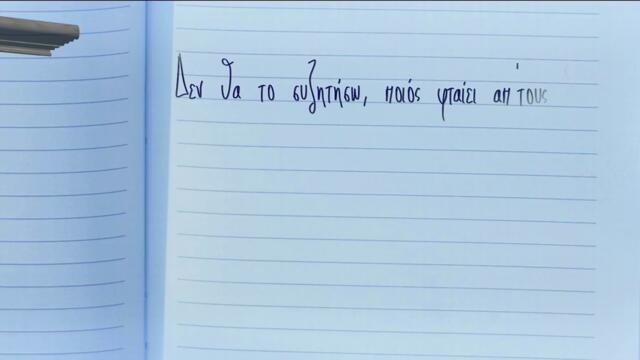 Δεν θα το συζητήσω, ποιός φταίει απ τους